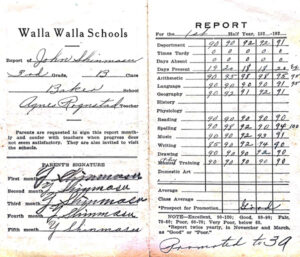 Walla Walla Schools
Report of John Shinmasu
3rd Grade, B Class
Baker School
Agnes Rognstad Teacher
Parents are requested to sign this report month-
ly and confer with teachers when progress
does not seem satisfactory. They are also invited to visit
the schools.
PARENT'S SIGNATURE
First month Y Shinmasu
Second month Y Shinmasu
Third month Y Shinmasu
Fourth month Y Shinmasu
Fifth month Y Shinmasu
REPORT
For the 1st Half Year, 192 -192
Department 90 90 92 92 91
Times Tardy
Days Absent
Days Present 19 20 18
Arithmetic 90 95 98
Language 90 90 90 90 91
Geography 90 92 91 92 91
History
Physiology
Reading 90 90 90
Spelling 90 98 92 90 94
Music 90 90 92 93 91
Writing 85 90 92 90
Drawing 90 90 90 92 90
Manual Training 90 90 90 90 90
Domestic Art
Average
Class Average
*Prospect for Promotion Good
NOTE: Excellent, 90-100; Good, 80-90; Fair,
70-80; Poor, 60-70; Very Poor, below 60.
*Report twice yearly, in November and March,
as "Good" or "Poor."
Promoted to 3A